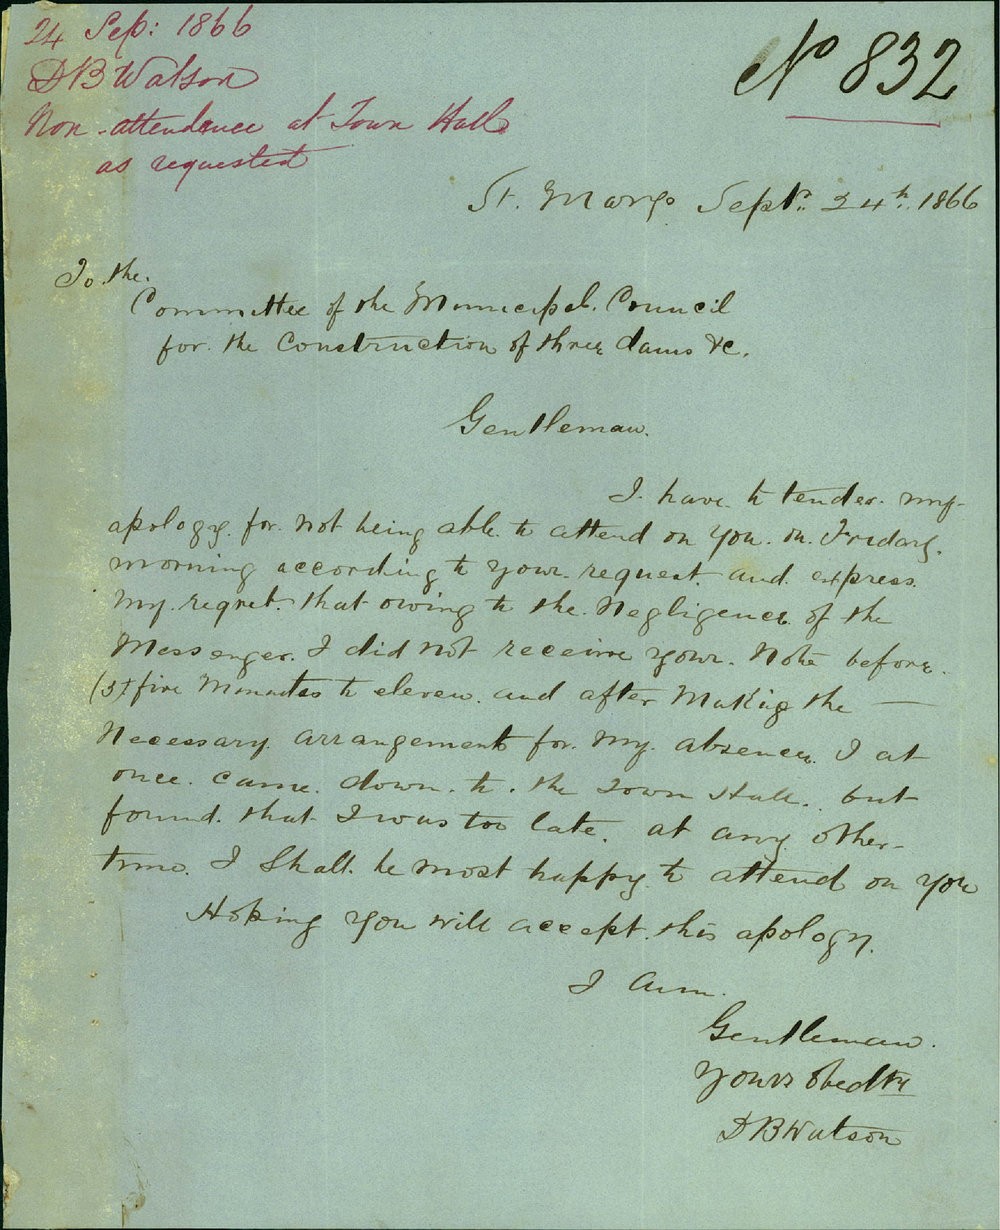 24 Sep: 1866
D B Watson
Non-attendance at Town Hall
as requested
No 832
St. Marys Septr. 24th. 1866
To. the.
Committee of the Municipal. Council
for. the Construction of three dams &c.
Gentleman.
I. have. to tender. my-
apology. for. not being able. to attend on you. on. Friday.
morning according to your. request. and. express.
my. regret. that owing to the. Negligence. of the
Messenger. I did not receive your. Note before.
(5) five Minutes to eleven. and after Making the —
Necessary. arrangements for. my. absence. I at
once. came. down. to. the Town Hall. but
found. that I was too late. at any other-
time. I Shall. be most happy to attend on you
Hoping you will accept. this apology.
I am.
Gentleman.
Yours obedtly
D B Watson